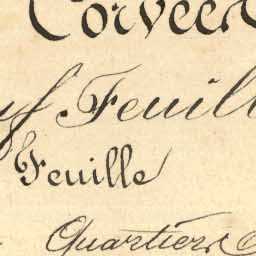 Corvées
uf Feuill
Feuille
Quartiers